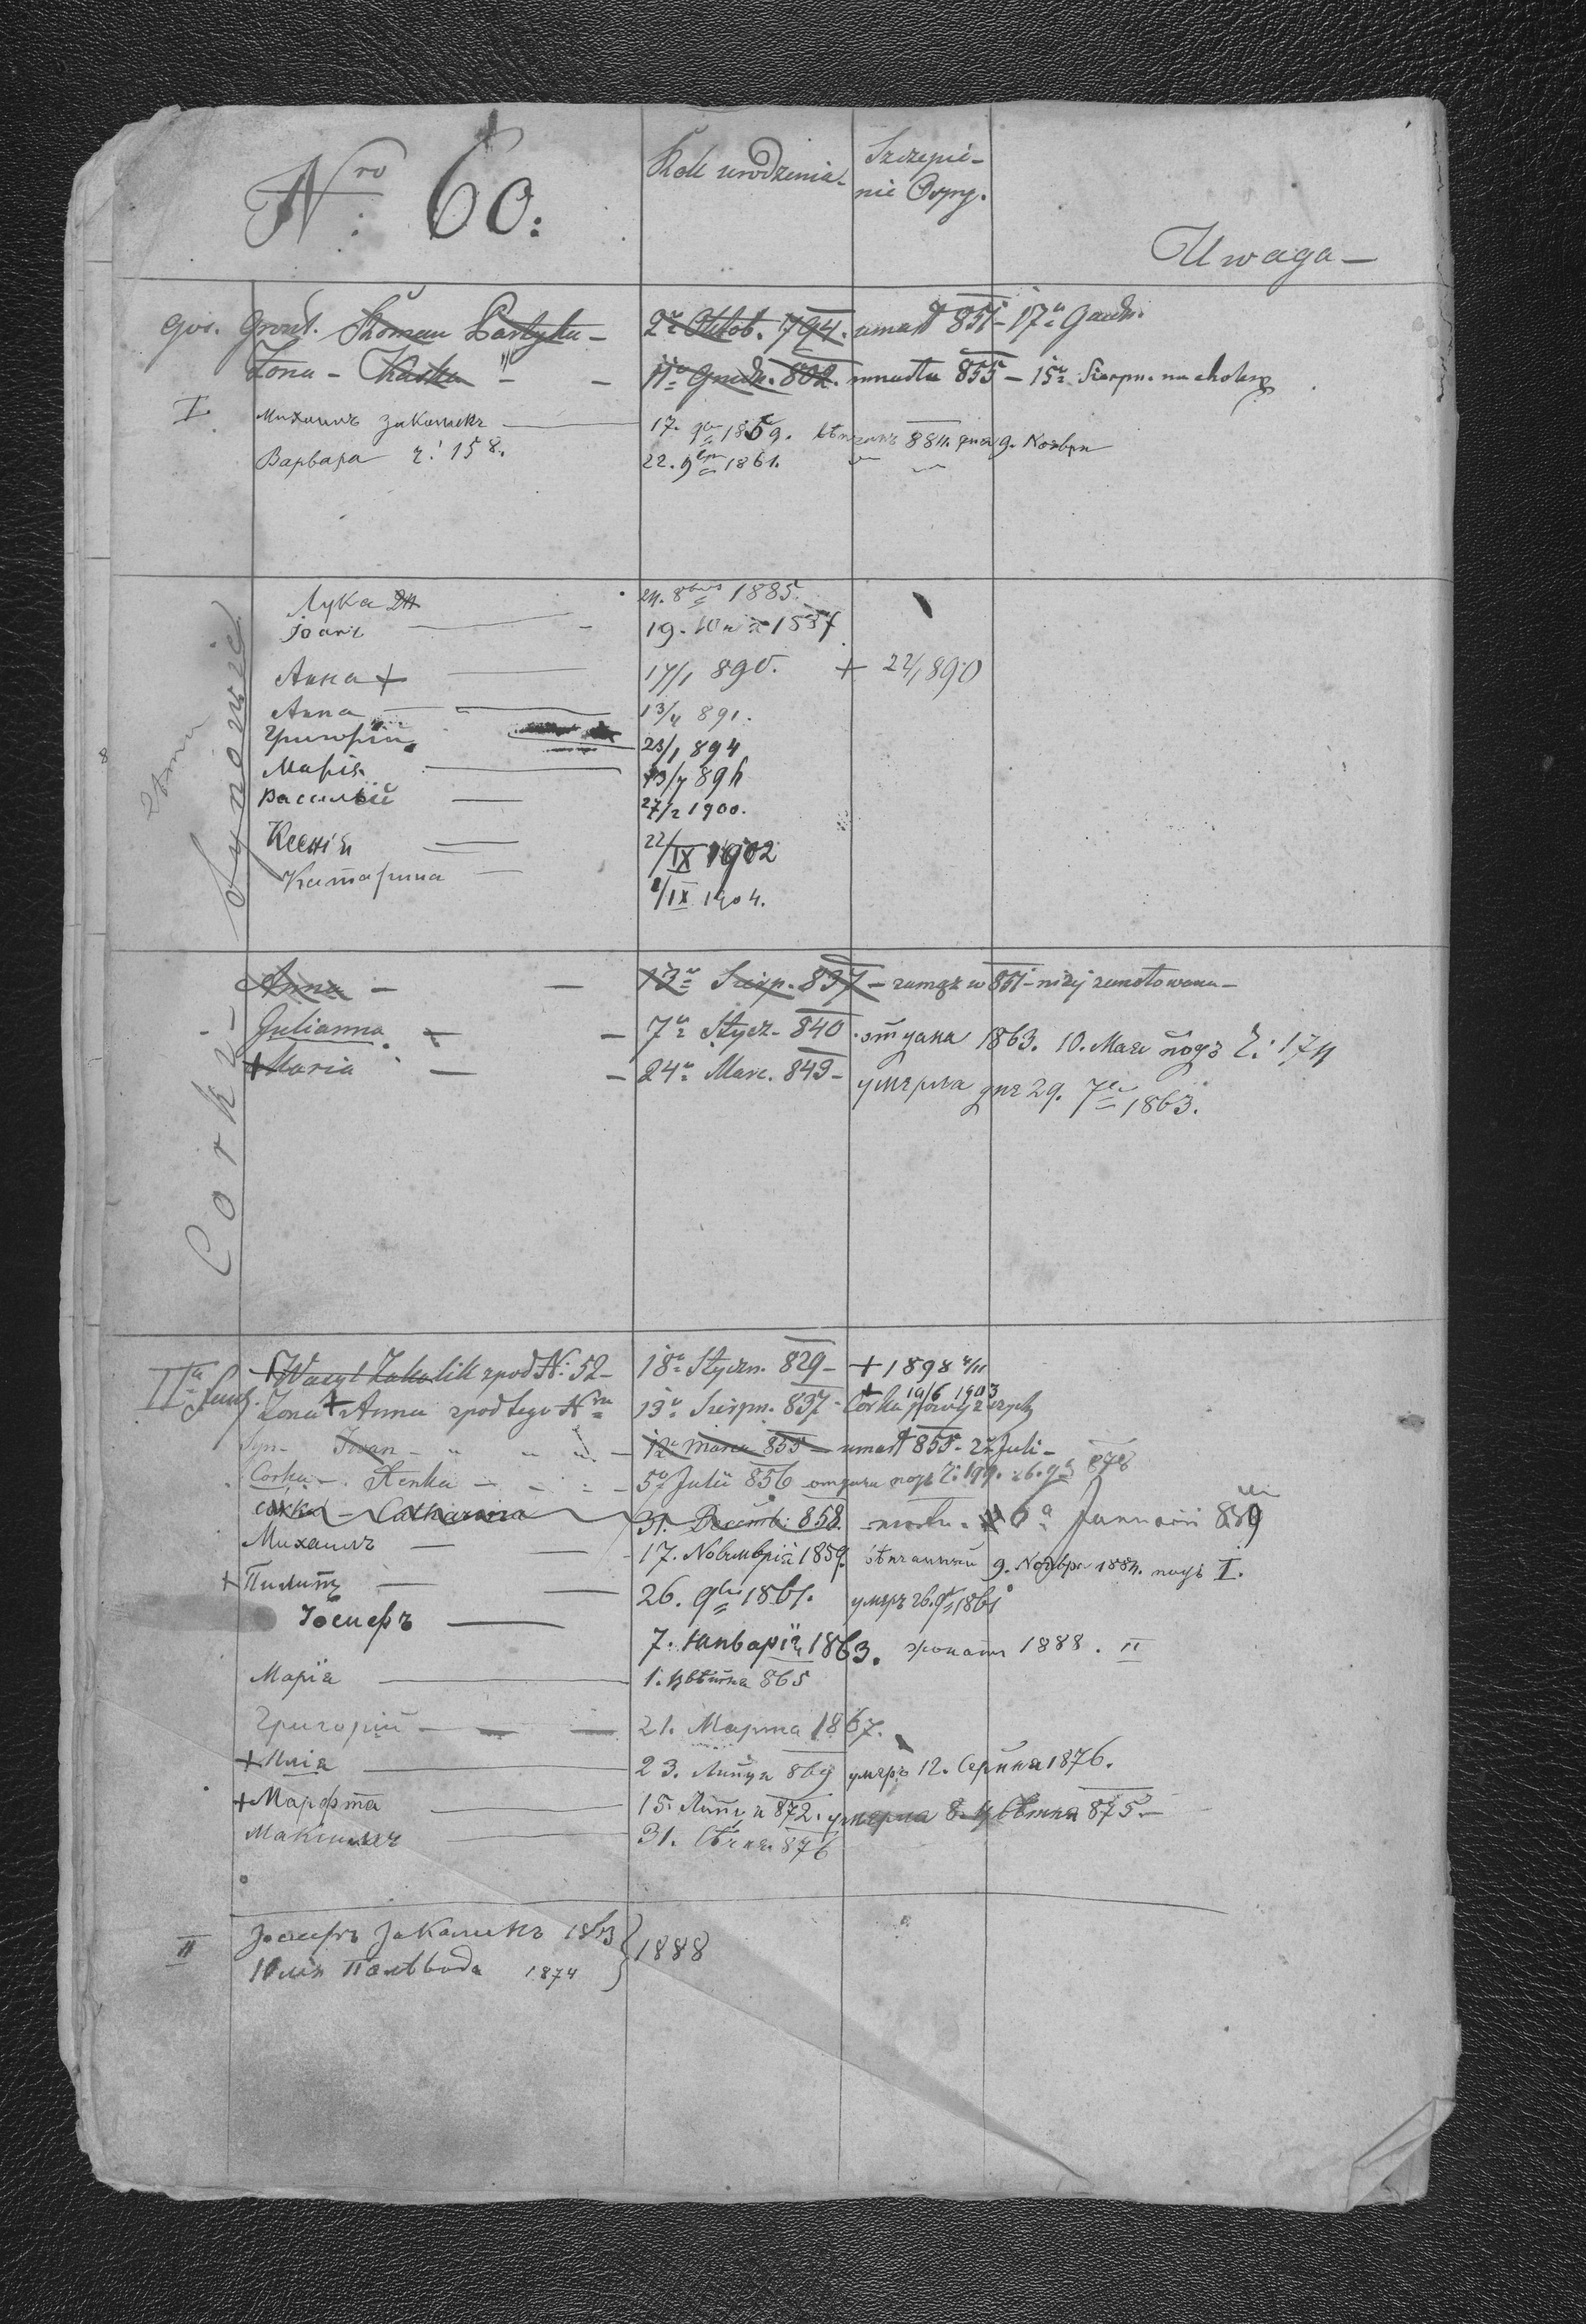 Nro 60:
Rok urodzenia
Szczepie-
nie Ospy.
Uwaga —
gos. grunt. Roman Pastyka — 2º Oktob. 794. umarł 851 — 17º Grudn.
Żona — Kaśka — 11º Grudn. 802. umarła 855 — 15º Sierpn. na cholerę
I. Михаилъ Закаликъ — 17. 9br 1859. вѣнчанъ 884. дня 9. Ноября
Варвара ч: 158. 22. 9bra 1861.
Synowie
Лука 24. 8bris 1885.
Іоанъ — 19. 1887
Анна + — 17/1 890. + 22/1 890
Анна — 13/4 891.
Григорій — 23/1 894
Марія — 13/7 896
Василій — 27/2 1900.
Ксенія — 22/IX 1902
Катарина — 8/IX 1904.
Corki —
Anna — 13º Sierp. 837 — zamęż w 851 — niżej zanotowana —
Julianna — 7º Stycz. 840 отдана 1863. 10. Мая подъ Ч: 174
+ Maria — 24º Marc. 849 — умерла дня 29. 7br 1863.
IIª famil. + Wasyl Zakalik zpod N: 52 — 18º Styczn. 829 — + 1898 4/11
Żona + Anna zpod tego Nru 13º Sierpn. 837 — Corka powyższych + 19/6 1903
Syn — Iwan — 12º Marca 855 — umarł 855 — 22 Juli —
Corka — Henka — 5º Julii 856 отдана подъ Ч: 199.
Corka — Catharina 31. Decemb: 858. 6ª Januarii 859
Михаилъ — 17. Новембрія 1859. вѣнчанный 9. Ноября 1884. подъ I.
+ Пилипъ — 26. 9br 1861. умеръ 26. 9br 1861
Іосифъ — 7. Януарія 1863. жонатъ 1888. II
Марія — 1. Цвѣтня 865
Григорій — 21. Марта 1867.
+ Илія — 23. Липця 869 умеръ 12. Серпня 1876.
+ Марфта — 15. Липця 872. умерла 8. Цвѣтня 875. —
Максимъ — 31. Сѣчня 876
II Іосифъ Закаликъ 1863 } 1888
Юлія Полѣвода 1874